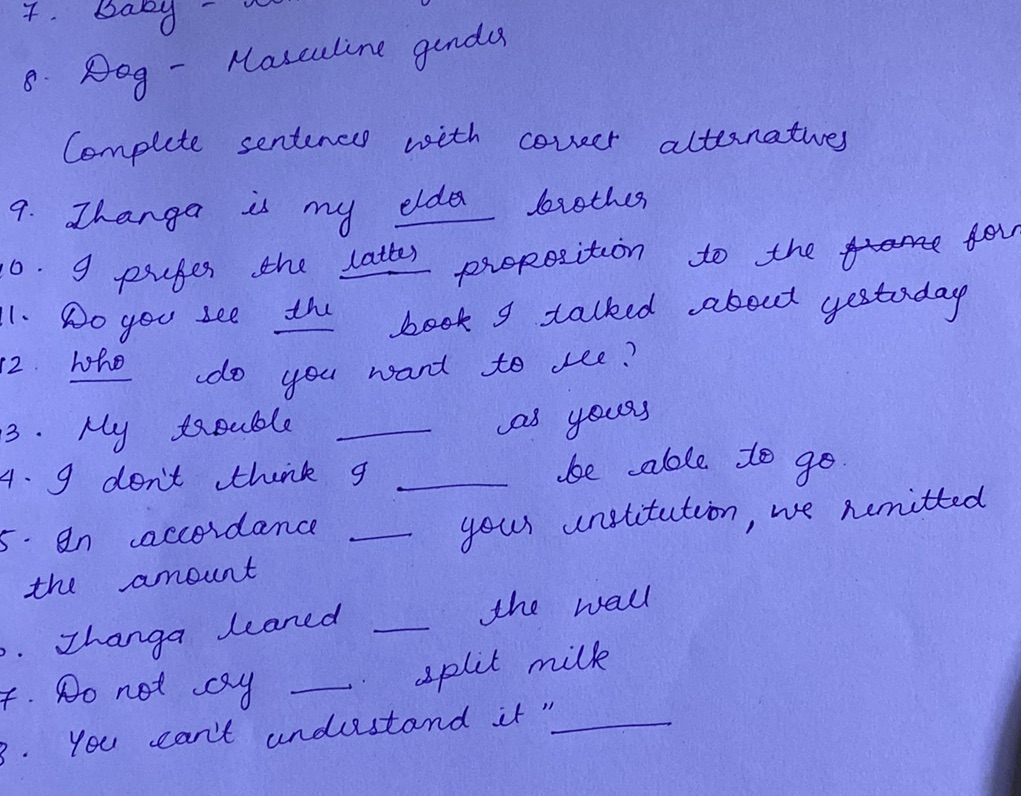 7. Baby -
8. Dog - Masculine gender
Complete sentences with correct alternatives
9. Thanga is my elder brother
10. I prefer the latter proposition to the frame form
11. Do you see the book I talked about yesterday
12. who do you want to see?
13. My trouble ____ as yours
14. I don't think I ____ be able to go.
5. In accordance ____ your institution, we remitted
the amount
Thanga leaned ____ the wall
7. Do not cry ____. split milk
8. You can't understand it "____